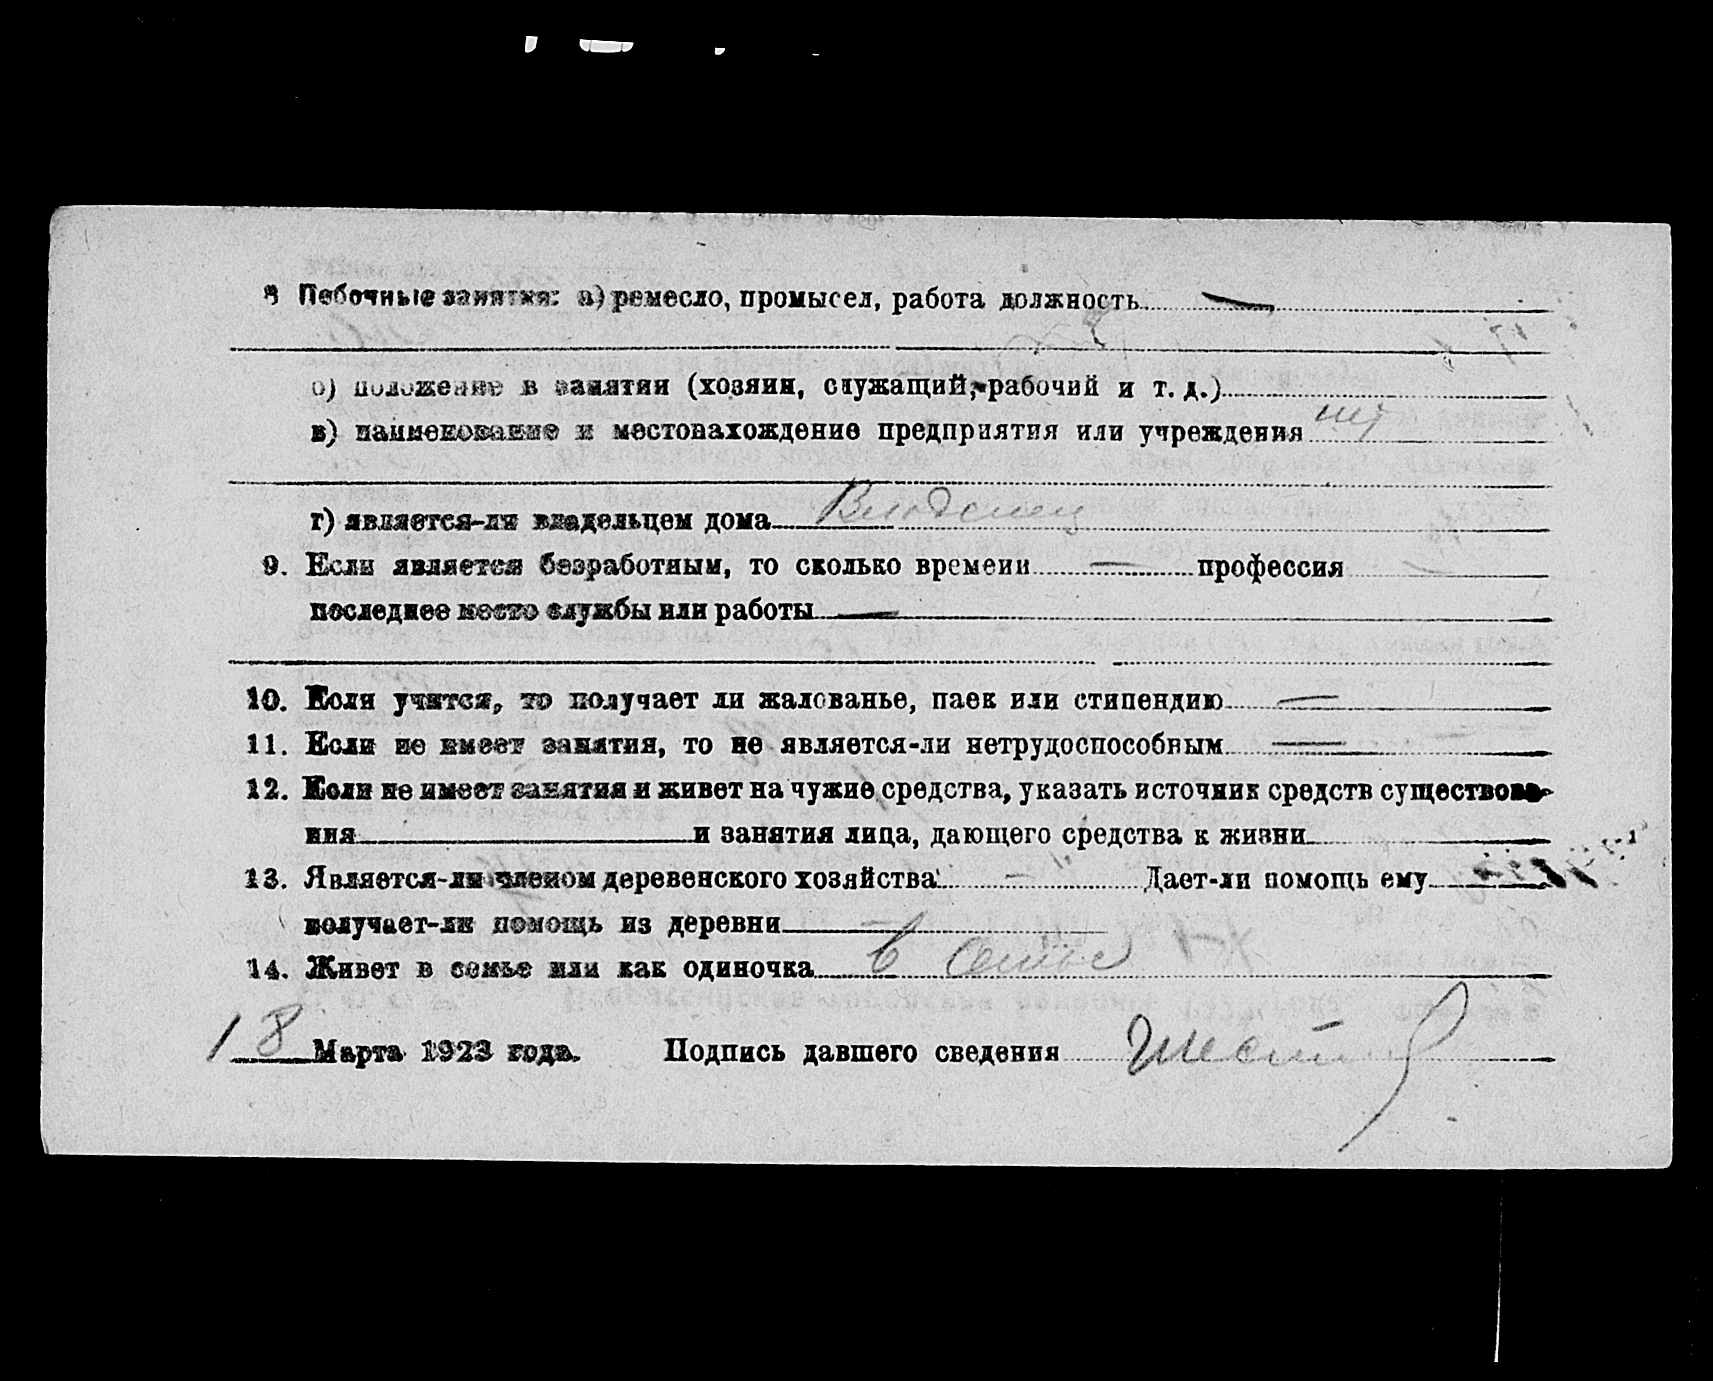 8 Побочные занятия: а) ремесло, промысел, работа должность
б) положение в занятии (хозяин, служащий, рабочий и т. д.)
в) наименование и местонахождение предприятия или учреждения нет
г) является-ли владельцем дома Владелец
9. Если является безработным, то сколько времени — профессия
последнее место службы или работы —
10. Если учится, то получает ли жалованье, паек или стипендию —
11. Если не имеет занятия, то не является-ли нетрудоспособным —
12. Если не имеет занятия и живет на чужие средства, указать источник средств существова-
ния и занятия лица, дающего средства к жизни
13. Является-ли членом деревенского хозяйства — Дает-ли помощь ему
получает-ли помощь из деревни —
14. Живет в семье или как одиночка в семье
18 Марта 1923 года. Подпись давшего сведения